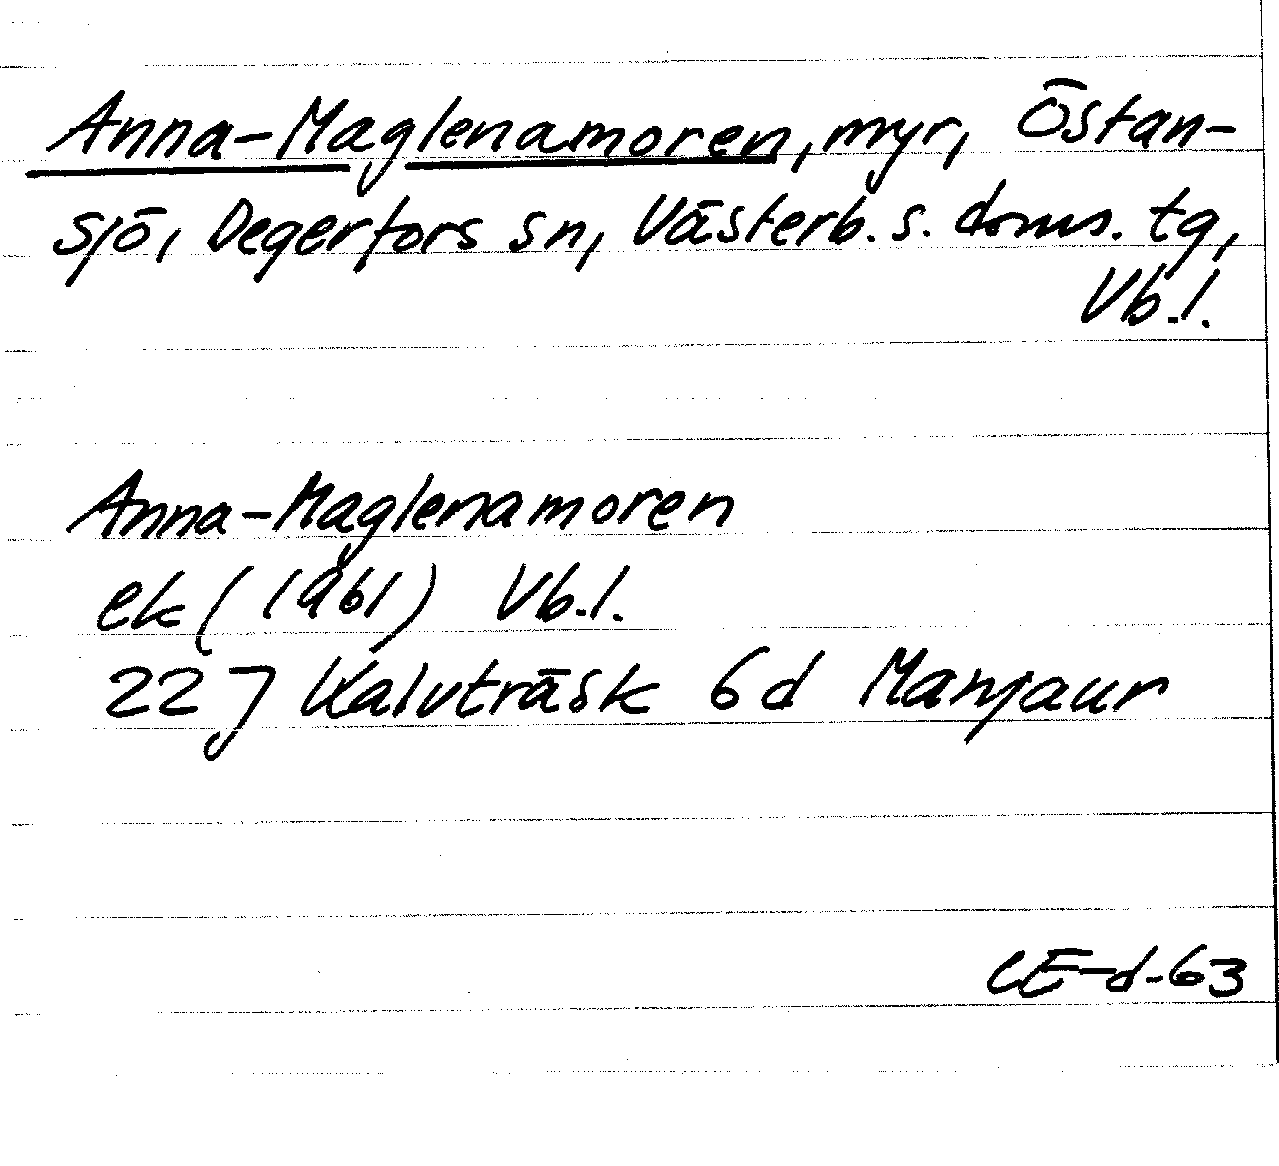 Anna-Maglenamoren, myr, Östan-
sjö, Degerfors sn, Västerb. s. doms. tg,
Vb.l.
Anna-Maglenamoren
ek (1961) Vb.l.
22 J Kalvträsk 6d Manjaur
CE-d-63